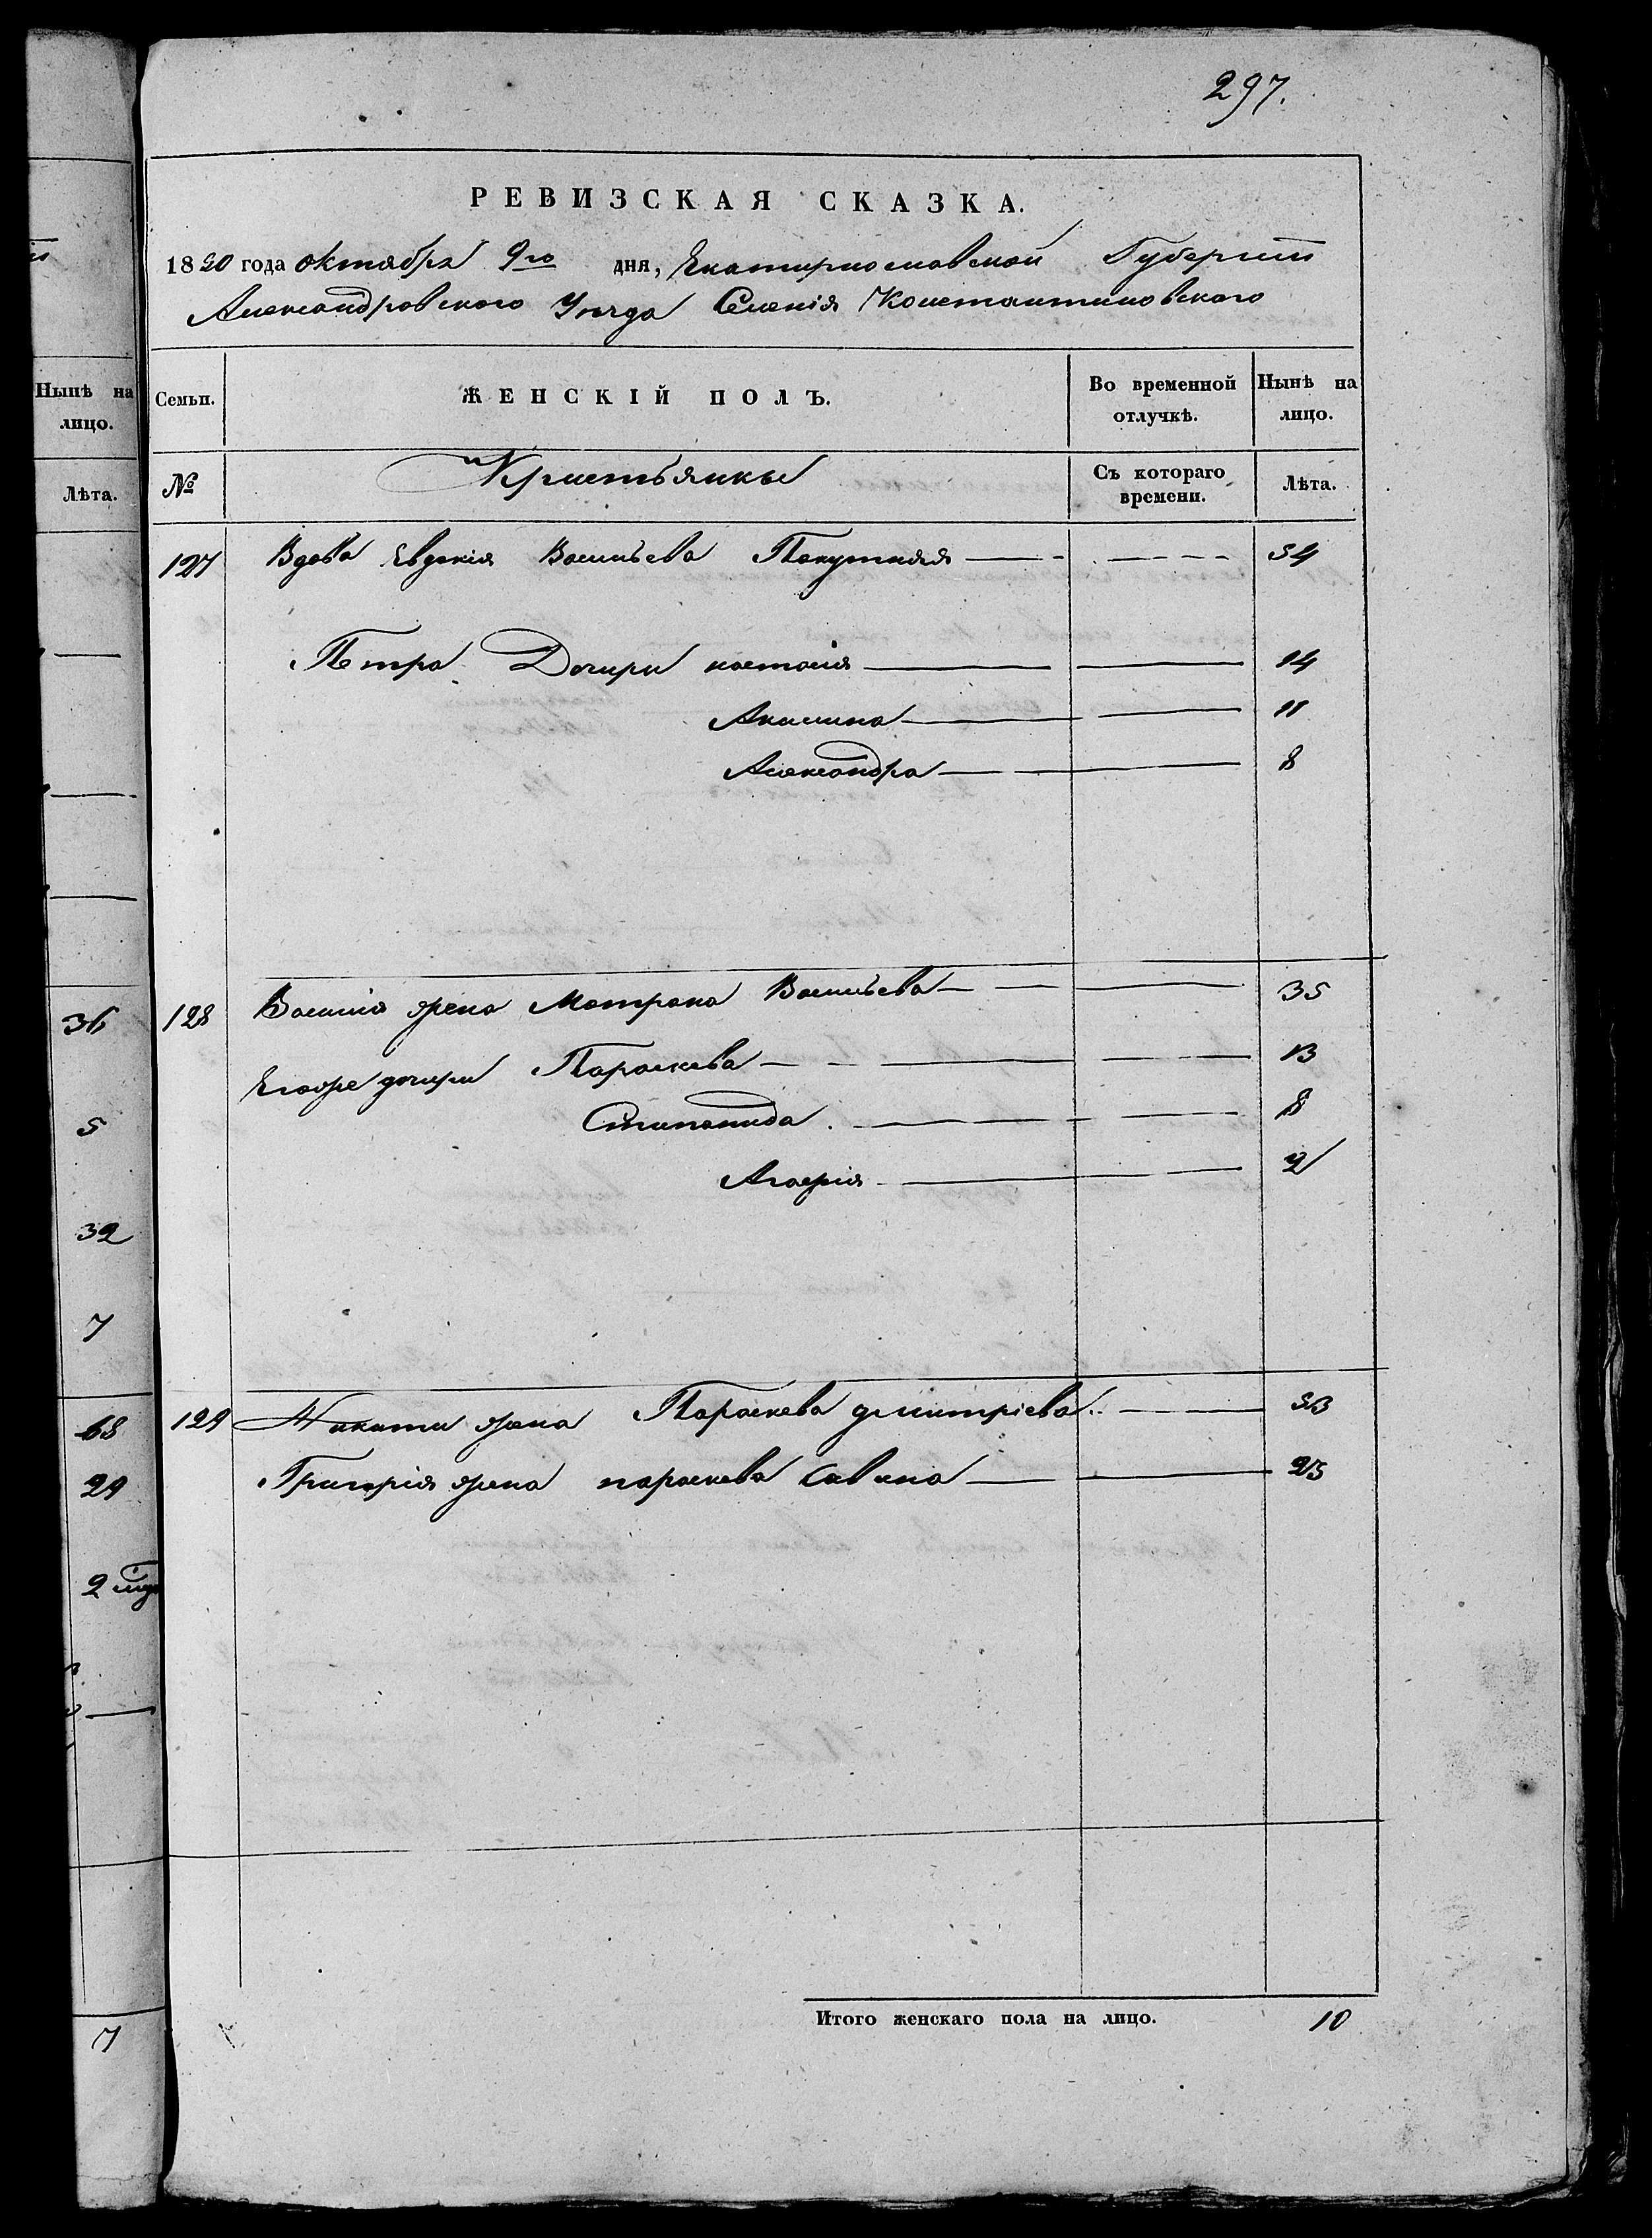 297.
РЕВИЗСКАЯ СКАЗКА.
1850 года октября 9го дня, Екатеринославской Губернии
Александровского Уезда Селенія Константиновского
Нынѣ на лицо.
Семьи.
ЖЕНСКІЙ ПОЛЪ.
Во временной отлучкѣ.
Нынѣ на лицо.
Лѣта.
№
Крестьянки
Съ котораго времени.
Лѣта.
127 Вдова Евдокія Васильева 54
Петра Дочери настасія 14
Акилина 11
Александра 8
36 128 Василія жена Матрона Васильева 35
Егоже дочери Параскева 13
5 Степанида 8
Агафія 2
32
7
68 129 Никиты жена Параскева дмитріева 53
29 Григорія жена параскева Савина 25
2
Итого женскаго пола на лицо. 10
7